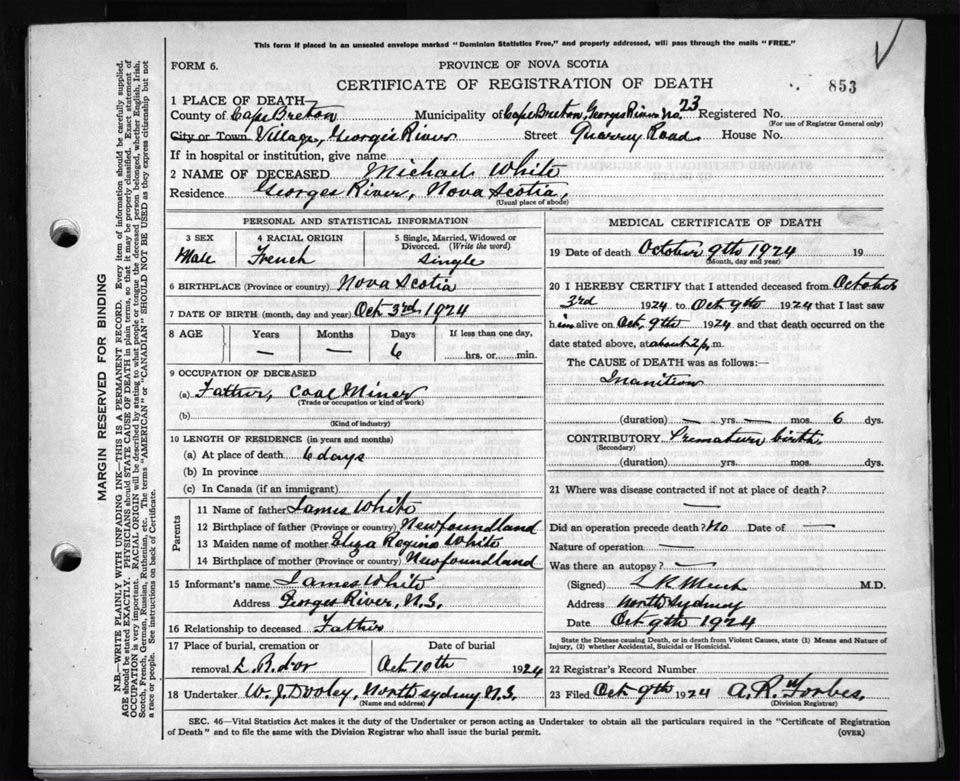 This form if placed in an unsealed envelope marked "Dominion Statistics Free," and properly addressed, will pass through the mails "FREE."
FORM 6.
PROVINCE OF NOVA SCOTIA
CERTIFICATE OF REGISTRATION OF DEATH
853
1 PLACE OF DEATH—
County of Cape Breton Municipality of Cape Breton, Georges River No. 23 Registered No.
(For use of Registrar General only)
City or Town Village, Georges River Street Quarry Road House No.
If in hospital or institution, give name
2 NAME OF DECEASED Michael White
Residence Georges River, Nova Scotia,
(Usual place of abode)
PERSONAL AND STATISTICAL INFORMATION
3 SEX Male
4 RACIAL ORIGIN French
5 Single, Married, Widowed or Divorced. (Write the word) Single
6 BIRTHPLACE (Province or country) Nova Scotia
7 DATE OF BIRTH (month, day and year) Oct 3rd, 1924
8 AGE Years Months Days If less than one day,
— — 6 hrs. or min.
9 OCCUPATION OF DECEASED
(a) Father, Coal Miner
(Trade or occupation or kind of work)
(b)
(Kind of industry)
10 LENGTH OF RESIDENCE (in years and months)
(a) At place of death 6 days
(b) In province
(c) In Canada (if an immigrant)
Parents
11 Name of father James White
12 Birthplace of father (Province or country) Newfoundland
13 Maiden name of mother Eliza Regina White
14 Birthplace of mother (Province or country) Newfoundland
15 Informant's name James White
Address Georges River, N.S.
16 Relationship to deceased Father
17 Place of burial, cremation or Date of burial
removal L. B. d'or Oct 10th 1924
18 Undertaker W. J. Dooley, North Sydney N.S.
(Name and address)
MEDICAL CERTIFICATE OF DEATH
19 Date of death October 9th 1924 19
(Month, day and year)
20 I HEREBY CERTIFY that I attended deceased from October
3rd 1924 to Oct 9th 1924 that I last saw
him alive on Oct, 9th 1924 and that death occurred on the
date stated above, at about 2 p. m.
The CAUSE of DEATH was as follows:—
Inanition
(duration) — yrs. — mos. 6 dys.
CONTRIBUTORY Premature birth
(Secondary)
(duration) yrs. mos. dys.
21 Where was disease contracted if not at place of death?
—
Did an operation precede death? No Date of —
Nature of operation —
Was there an autopsy? —
(Signed) M.D.
Address North Sydney
Date Oct 9th 1924
State the Disease causing Death, or in death from Violent Causes, state (1) Means and Nature of
Injury, (2) whether Accidental, Suicidal or Homicidal.
22 Registrar's Record Number
23 Filed Oct 9th 1924 A. R. Forbes,
(Division Registrar)
SEC. 46—Vital Statistics Act makes it the duty of the Undertaker or person acting as Undertaker to obtain all the particulars required in the "Certificate of Registration
of Death" and to file the same with the Division Registrar who shall issue the burial permit.
(OVER)
MARGIN RESERVED FOR BINDING
N.B.—WRITE PLAINLY WITH UNFADING INK—THIS IS A PERMANENT RECORD. Every item of information should be carefully supplied.
AGE should be stated EXACTLY. PHYSICIANS should STATE CAUSE OF DEATH in plain terms, so that it may be properly classified. Exact statement of
OCCUPATION is very important. RACIAL ORIGIN will be described by stating to what people or tongue the deceased person belonged, whether English, Irish,
Scotch, French, German, Russian, Ruthenian, etc. The terms "AMERICAN" or "CANADIAN" SHOULD NOT BE USED as they express citizenship but not
a race or people. See instructions on back of Certificate.